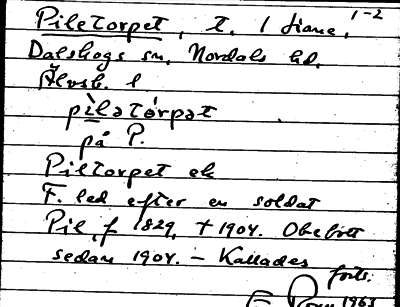 1-2
Piletorpet, t. 1 Liane,
Dalskogs sn, Nordals hd,
Älvsb. l
pìlətórpət
på P.
Piltorpet ek
F. led efter en soldat
Pil, f 1829, † 1904. Obebott
sedan 1904. – Kallades
forts.
1963